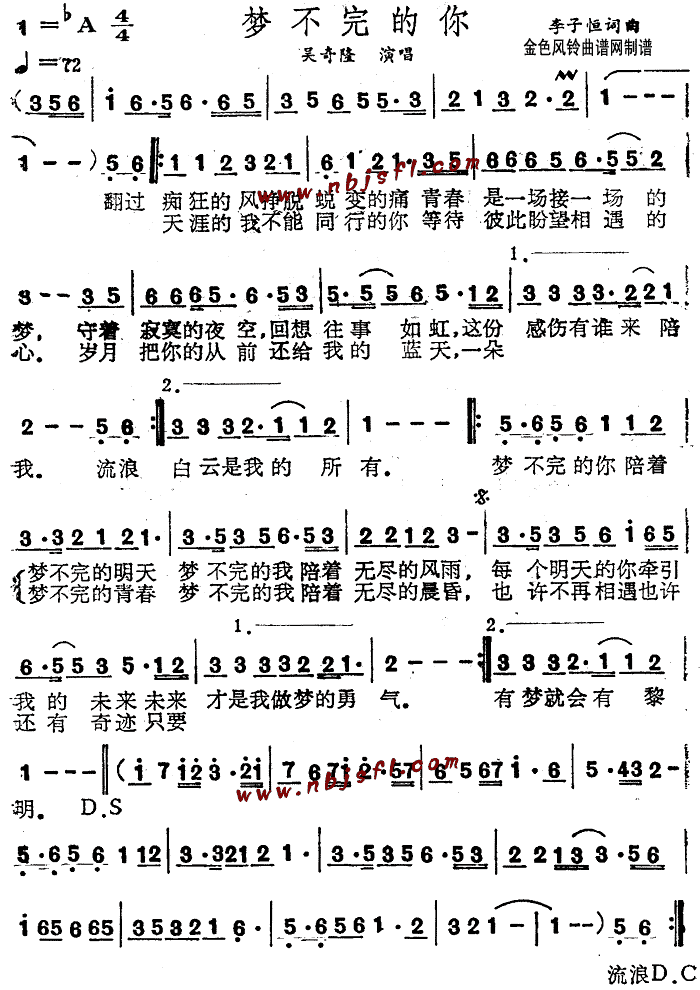 1=♭A 4/4 梦不完的你 李子恒词曲
♩=72 吴奇隆 演唱 金色风铃曲谱网制谱
(356 | i 6·56·65 | 35655·3 | 2132·2 | 1---
1--)56 |: 1112321 | 6121·35 | 666656·5 | 552
www.nbjsfl.com
翻过 痴狂的风挣脱 蜕变的痛青春 是一场接一场的
天涯的我不能 同行的你等待 彼此盼望相遇的
1.
3--35 | 6665·6·53 | 5·5565·12 | 3333·221
梦, 守着 寂寞的夜空,回想 往事 如虹,这份 感伤有谁来陪
心。 岁月 把你的从前还给我的 蓝天,一朵
2.
2--56 :| 3332·112 | 1--- |: 5·656112
我。 流浪 白云是我的所有。 梦不完的你陪着
3·321221· | 3·535656·53 | 221223- | 3·5356i65
梦不完的明天 梦不完的我陪着 无尽的风雨, 每个明天的你牵引
梦不完的青春 梦不完的我陪着 无尽的晨昏, 也许不再相遇也许
1. 2.
6·5535·12 | 33333221· | 2--- :| 3332·112
我的未来未来 才是我做梦的勇气。 有梦就会有黎
还有奇迹只要
1--- || (i7i23·2i | 7672·57 | 6·567i·6 | 5·432-
www.nbjsfl.com
明。 D.S
5·656112 | 3·321221· | 3·535656·53 | 22133·56
i656665 | 353216· | 5·6561·2 | 321- | 1--)56 :|
流浪D.C